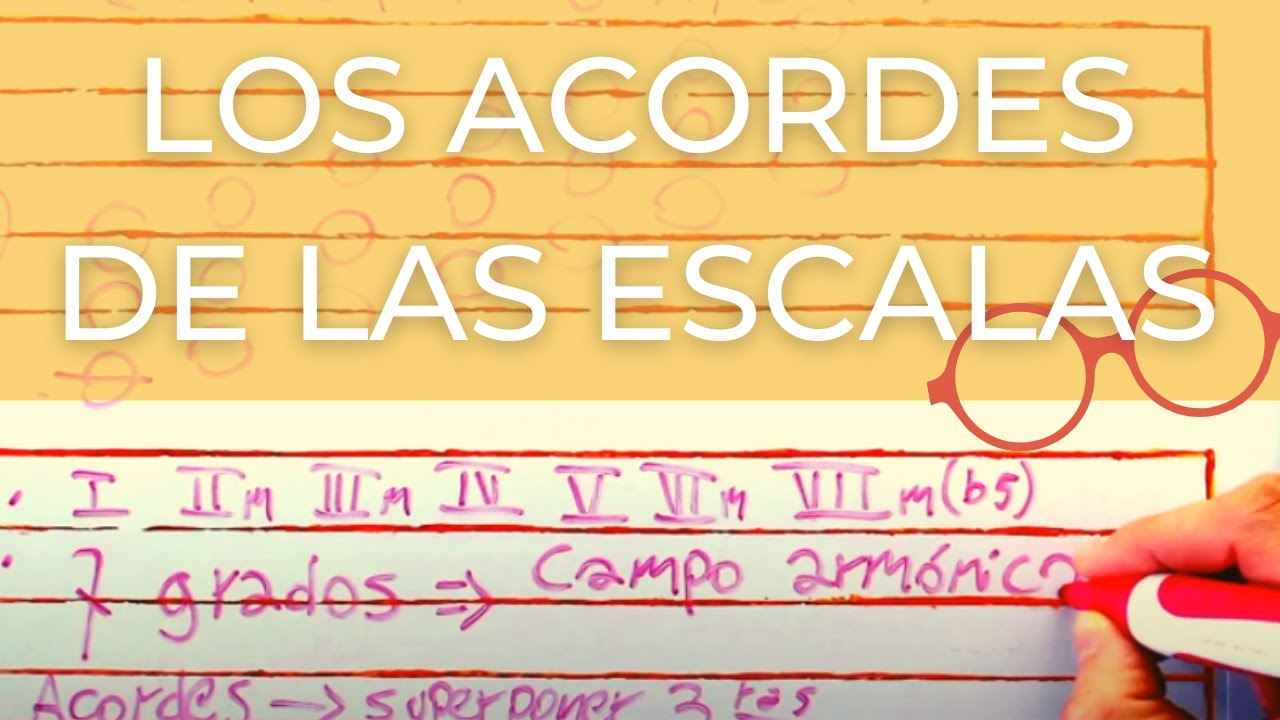 LOS ACORDES
DE LAS ESCALAS
• I IIm IIIm IV V VIm VIIm(b5)
• 7 grados ⇒ Campo armónico
Acordes → superponer 3ras